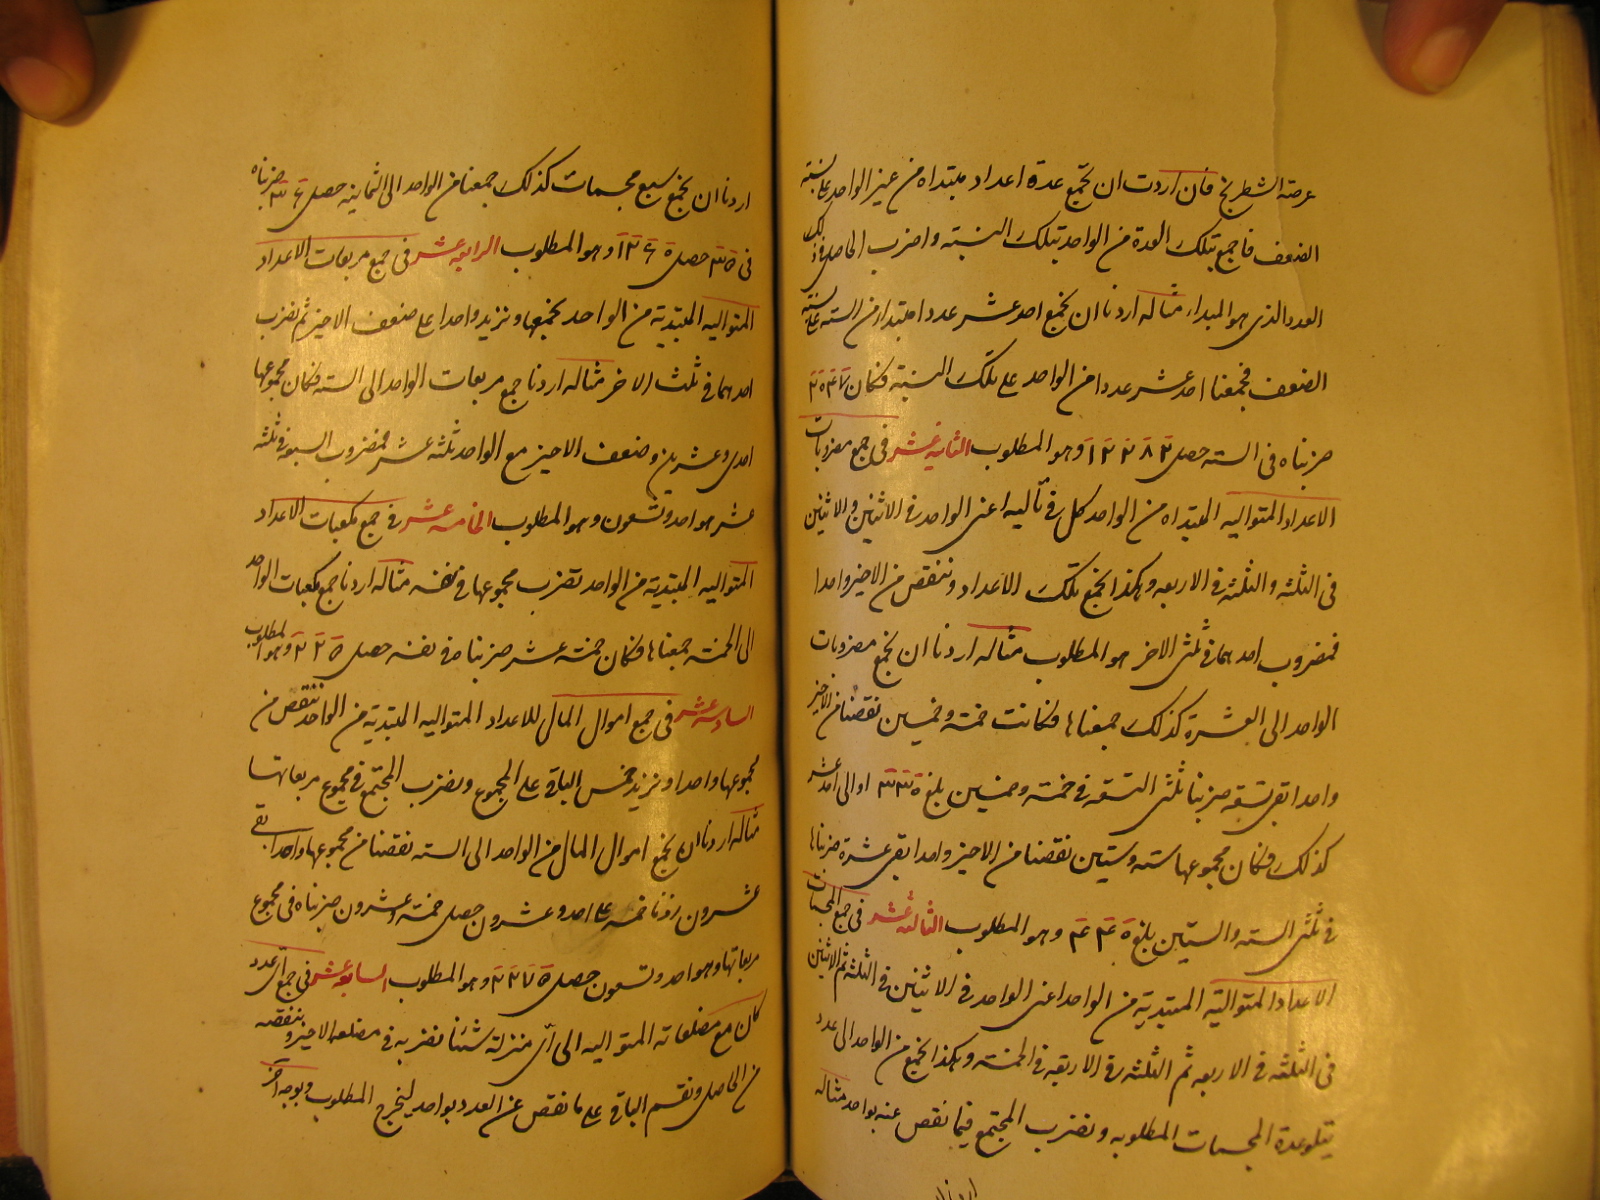 عرصة الشطرنج فان اردت ان تجمع عدة اعداد مبتداه من غير الواحد على نسبة
الضعف فاجمع بتلك العدة من الواحد بتلك النسبة واضرب الحاصل في ذلك
العدد الذى هو المبداء مثاله اردنا ان نجمع احد عشر عددا مبتداء من الستة على نسبة
الضعف فجمعنا احد عشر عددا من الواحد على تلك النسبة فكان ٢٠٤٧
ضربناه فى الستة حصل ١٢٢٨٢ وهو المطلوب الثانيه عشر فى جمع مضروبات
الاعداد المتواليه المبتداه من الواحد كل فى تاليه اعنى الواحد فى الاثنين والاثنين
فى الثلثه والثلثه فى الاربعه وهكذا نجمع تلك الاعداد وننقص من الاخير واحدا
فمضروب احدهما فى ثلثى الاخر هو المطلوب مثاله اردنا ان نجمع مضروبات
الواحد الى العشرة كذلك جمعناها فكانت خمسة وخمسين نقصنا من الاخير
واحدا بقى تسعة ضربنا ثلثى التسعه فى خمسة وخمسين بلغ ٣٣٠ او الى احد عشر
كذلك فكان مجموعها سته وستين نقصنا من الاخير واحدا بقى عشرة ضربناها
فى ثلثى السته والستين بلغ ٤٤٠ وهو المطلوب الثالثه عشر فى جمع المجسمات
الاعداد المتوالية المبتدية من الواحد اعنى الواحد فى الاثنين فى الثلثه ثم الاثنين
فى الثلثه فى الاربعه ثم الثلثه فى الاربعه فى الخمسة وهكذا نجمع من الواحد الى عدد
يتلو عدة المجسمات المطلوبه ونضرب المجتمع فيما نقص عنه بواحد مثاله
اردنا
اردنا ان نجمع سبع مجسمات كذلك جمعنا من الواحد الى الثمانية حصل ٣٦ ضربناه
فى ٣٥ حصل ١٢٦٠ وهو المطلوب الرابعه عشر فى جمع مربعات الاعداد
المتواليه المبتدية من الواحد نجمعها ونزيد واحدا على ضعف الاخير ثم نضرب
احدهما فى ثلث الاخر مثاله اردنا جمع مربعات الواحد الى السته فكان مجموعها
احدى وعشرين وضعف الاخير مع الواحد ثلثه عشر فمضروب السبعة فى ثلثه
عشر هو احد وتسعون وهو المطلوب الخامسه عشر فى جمع مكعبات الاعداد
المتواليه المبتدية من الواحد نضرب مجموعها فى نفسه مثاله اردنا جمع مكعبات الواحد
الى الخمسة جمعناها فكان خمسة عشر ضربناه فى نفسه حصل ٢٢٥ وهو المطلوب
السادسه عشر فى جمع اموال المال للاعداد المتواليه المبتدية من الواحد ننقص من
مجموعها واحدا ونزيد خمس الباقى على المجموع ونضرب المجتمع فى مجموع مربعاتها
مثاله اردنا ان نجمع اموال المال من الواحد الى السته نقصنا من مجموعها واحدا بقى
عشرون زدنا خمسه على احد وعشرون حصل خمسة وعشرون ضربناه فى مجموع
مربعاتها وهو احد وتسعون حصل ٢٢٧٥ وهو المطلوب السابعه عشر فى جمع اى عدد
كان مع مضلعاته المتواليه الى اى منزلة شئنا نضربه فى مضلعه الاخير وننقصه
من الحاصل ونقسم الباقى على ما نقص عن العدد بواحد ليخرج المطلوب وبوجه اخر